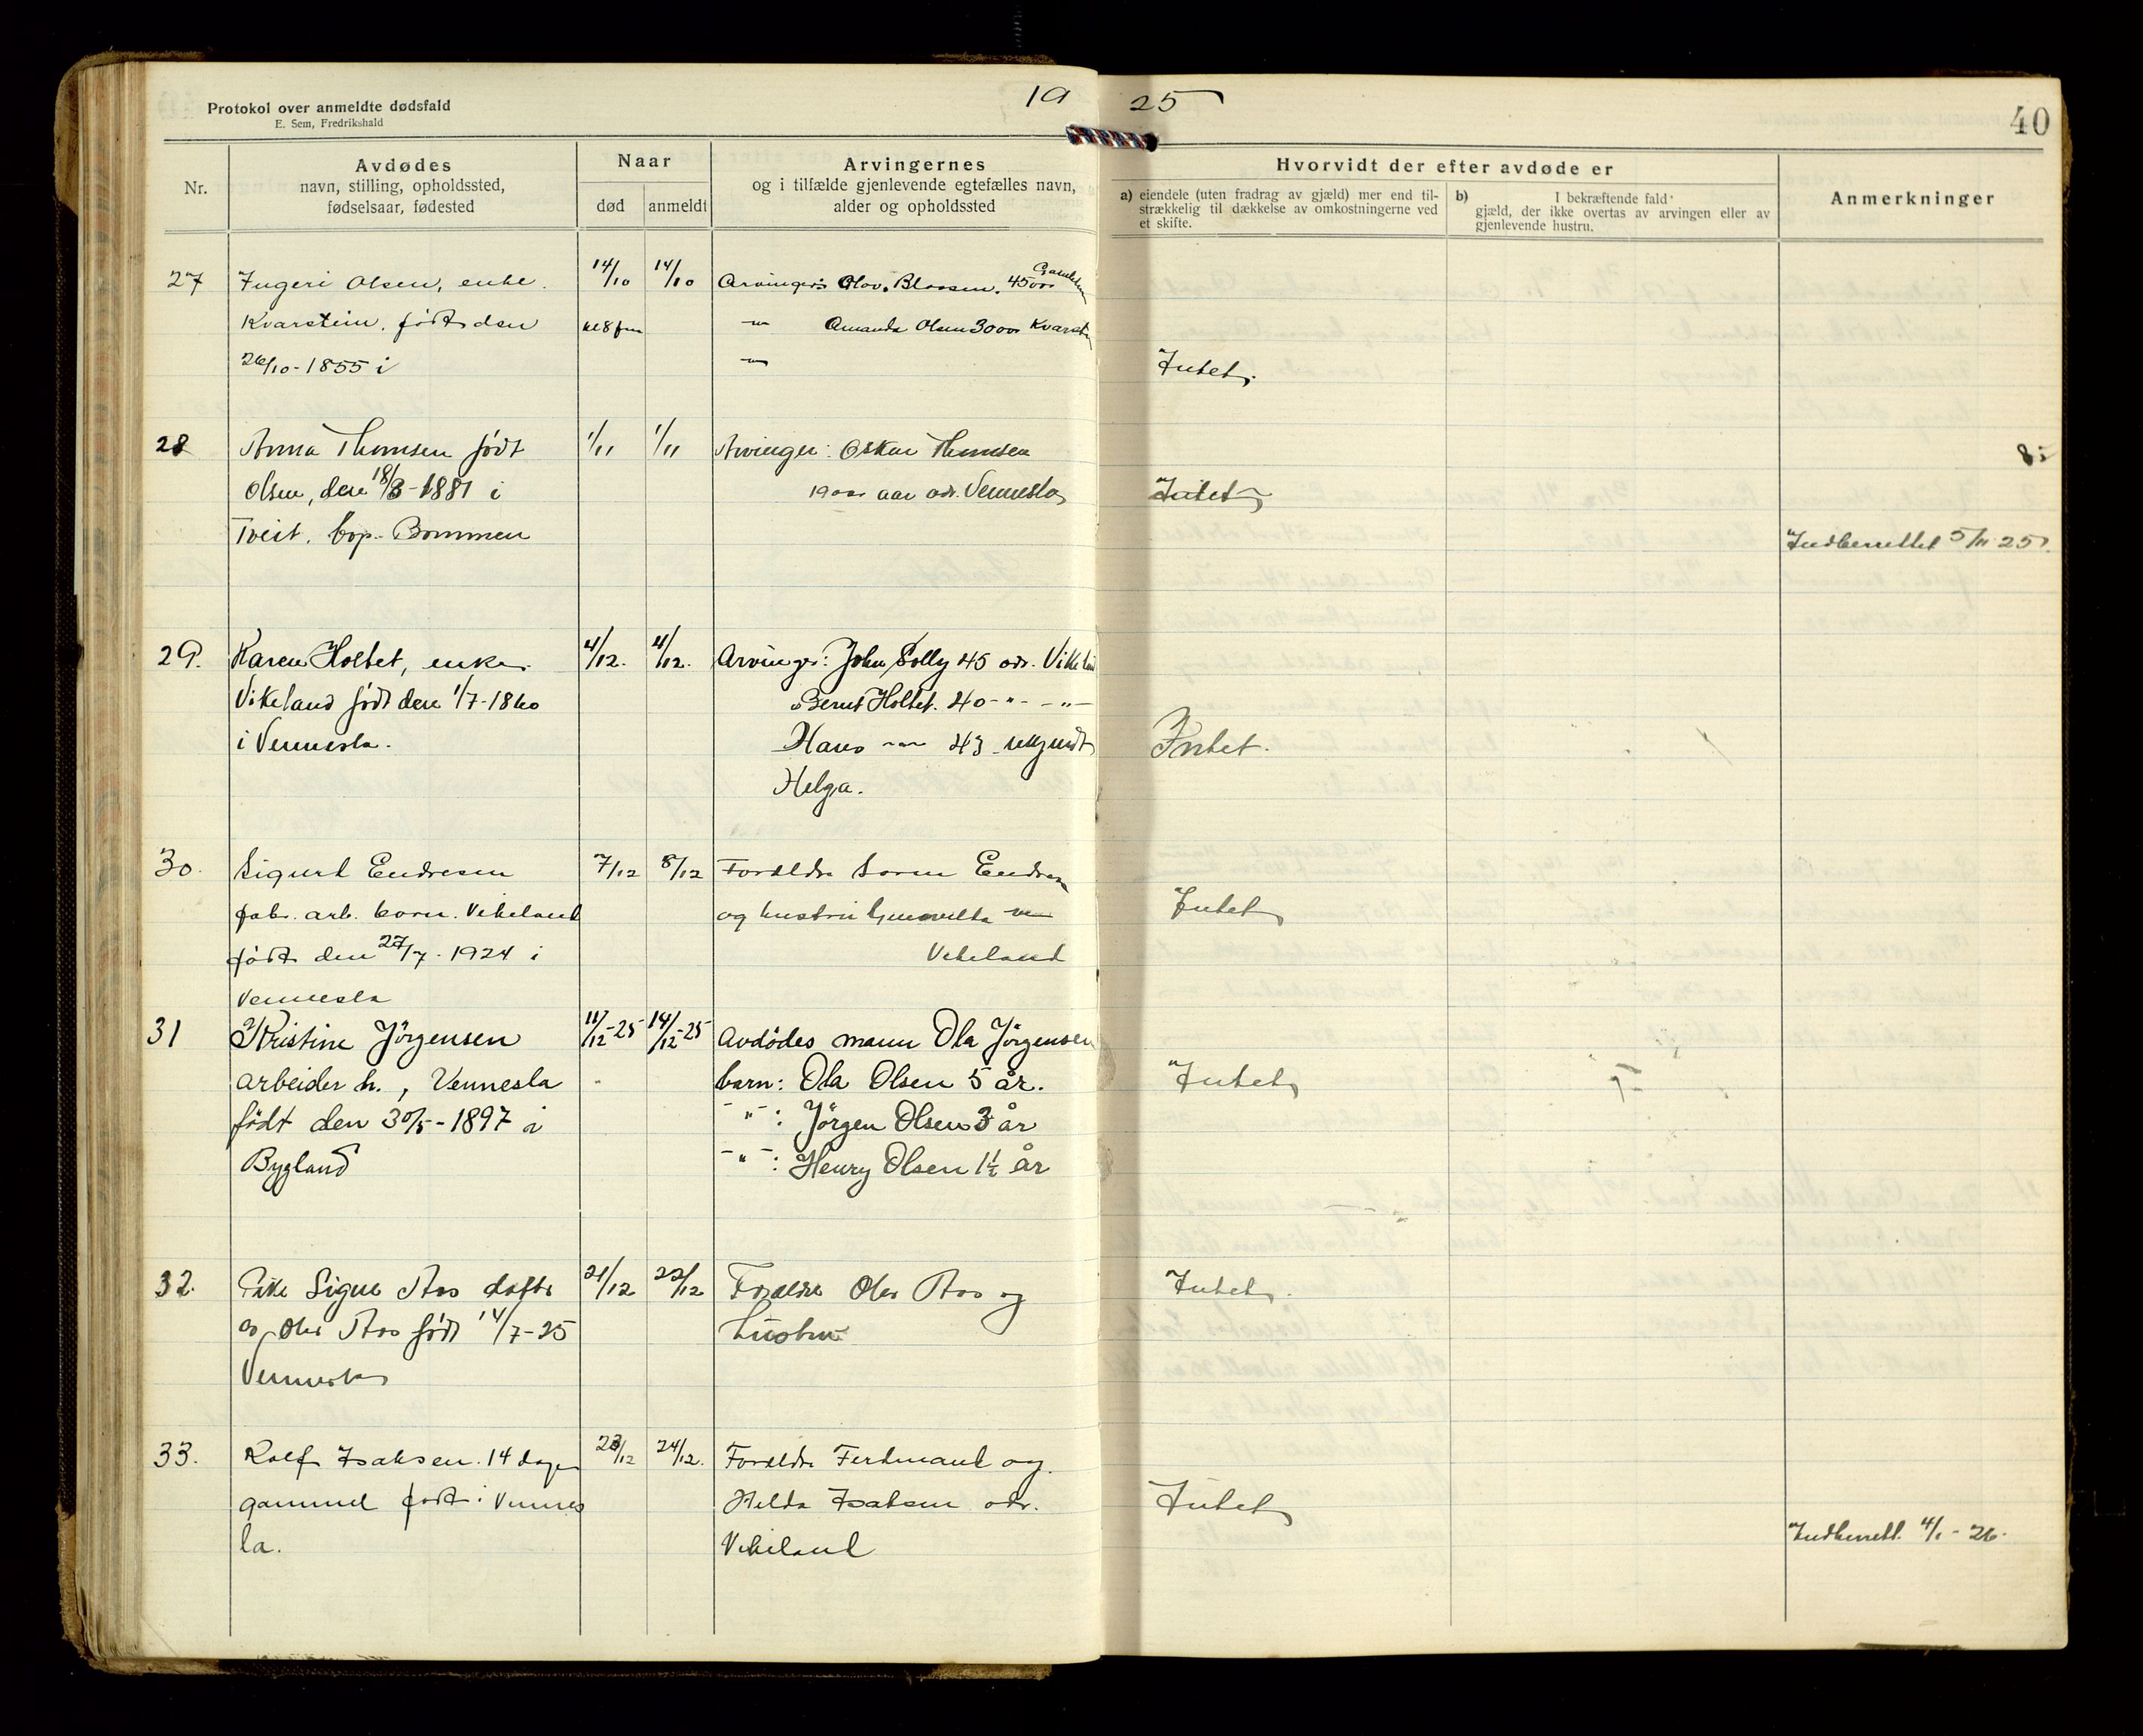 Protokol over anmeldte dødsfald
E. Sem, Fredrikshald
19 25
40
Nr.
Avdødes
navn, stilling, opholdssted,
fødselsaar, fødested
Naar
død
anmeldt
Arvingernes
og i tilfælde gjenlevende egtefælles navn,
alder og opholdssted
Hvorvidt der efter avdøde er
a) eiendele (uten fradrag av gjæld) mer end til-
strækkelig til dækkelse av omkostningerne ved
et skifte.
b) I bekræftende fald
gjæld, der ikke overtas av arvingen eller av
gjenlevende hustru.
Anmerkninger
27
Ingeri Olsen, enke.
Kvarstein. født den
26/10-1855 i
14/10
kl 8 fm
14/10
Arvinger: Olov. 45
Amanda Olsen 30 Kvarstein
Intet.
28
Anna Thomsen født
Olsen, den 18/8-1881 i
Tveit. bop. Bommen
1/11
1/11
Arvinger: Oskar Thomsen
19 aar adr. Vennesla
Intet
Indberettet 5/11 25.
29.
Karen Holtet, enke
Vikeland født den 1/7-1860
i Vennesla.
4/12.
4/12.
Arvinger: John Solly 45 adr. Vikeland
Bernt Holtet. 40 -"- -"-
Hans -"- 43 ukjendt
Helga.
Intet.
30.
Sigurd Endresen
fab. arb. barn. Vikeland
født den 27/7-1924 i
Vennesla
7/12
8/12
Foreldre Soren Endresen
og hustru
Vikeland
Intet
31
Kristine Jörgensen
arbeider h., Vennesla
födt den 30/5-1897 i
Bygland
11/12-25
14/12-25
Avdödes mann Ola Jörgensen
barn: Ola Olsen 5 år.
-"-: Jörgen Olsen 3 år
-"-: Henry Olsen 1½ år
Intet
32.
Pike Signe Aas datter
av Olav Aas født 14/7-25
Vennesla
21/12
22/12
Foreldre Olav Aas og
hustru
Intet.
33.
Rolf Isaksen. 14 dager
gammel født i Vennes
la.
23/12
24/12.
Foreldre Ferdinand og
Hilda Isaksen adr.
Vikeland
Intet
Indberett. 4/1-26.